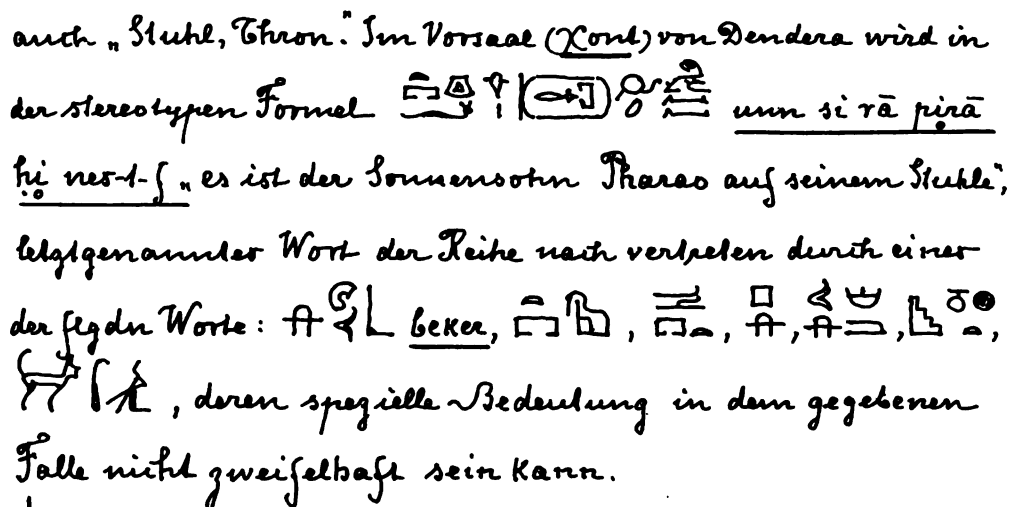 auch „Stuhl, Thron“. Im Vorsaal (χont) von Dendera wird in
der stereotypen Formel unn si rā pirā
ḥi nes-t-f „es ist der Sonnensohn Pharao auf seinem Stuhle“,
letztgenanntes Wort der Reihe nach vertreten durch eines
der flgdn Worte: beker, , , , , ,
, deren spezielle Bedeutung in dem gegebenen
Falle nicht zweifelhaft sein kann.